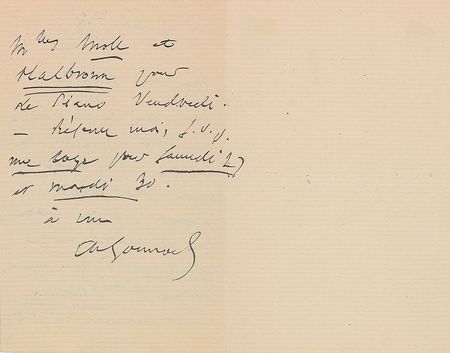 Mlles Moll et
Halbronn pour
le Piano Vendredi.
— Réserve moi, s.v.p.
une loge pour Samedi 27
et mardi 30.
à vous
Ch Gounod